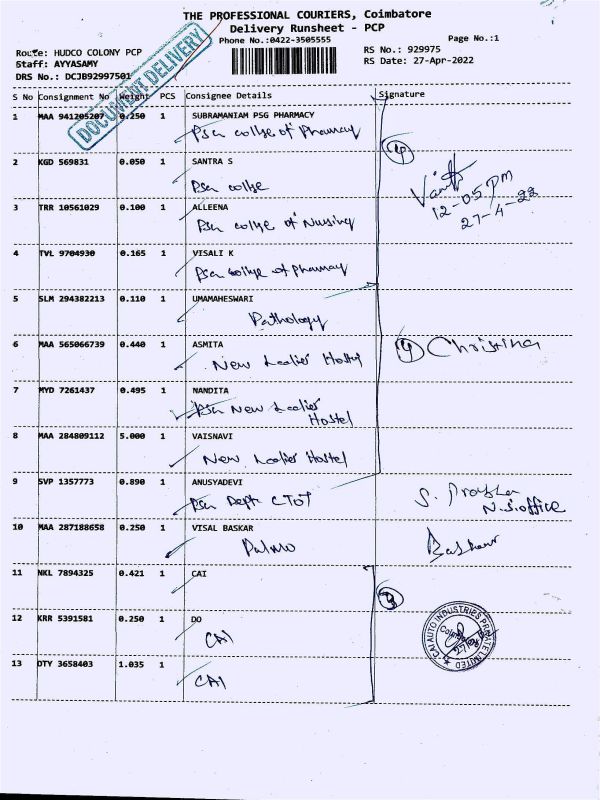 THE PROFESSIONAL COURIERS, Coimbatore
Delivery Runsheet - PCP
Phone No.:0422-3505555
Page No.:1
Route: HUDCO COLONY PCP
RS No.: 929975
Staff: AYYASAMY
RS Date: 27-Apr-2022
DRS No.: DCJB92997501
DOCUMENT DELIVERY
S No Consignment No Weight PCS Consignee Details Signature
1 MAA 941205207 0.250 1 SUBRAMANIAM PSG PHARMACY
PSG collge of Pharmacy
(4)
2 KGD 569831 0.050 1 SANTRA S
PSG collge
12-05 PM
27-4-22
3 TRR 10561029 0.100 1 ALLEENA
PSG collge of Nursing
4 TVL 9704930 0.165 1 VISALI K
PSG collge of Pharmacy
5 SLM 294382213 0.110 1 UMAMAHESWARI
Pathology
6 MAA 565066739 0.440 1 ASMITA
New Ladies Hostel
(4) Christina
7 MYD 7261437 0.495 1 NANDITA
PSG New Ladies
Hostel
8 MAA 284809112 5.000 1 VAISNAVI
New Ladies Hostel
9 SVP 1357773 0.890 1 ANUSYADEVI
PSG Dept CTOT
N.S.office
10 MAA 287188658 0.250 1 VISAL BASKAR
Pulmo
Baskar
11 NKL 7894325 0.421 1 CAI
(3)
12 KRR 5391581 0.250 1 DO
CAI
CAI AUTO INDUSTRIES PRIVATE LIMITED
13 OTY 3658403 1.035 1
CAI